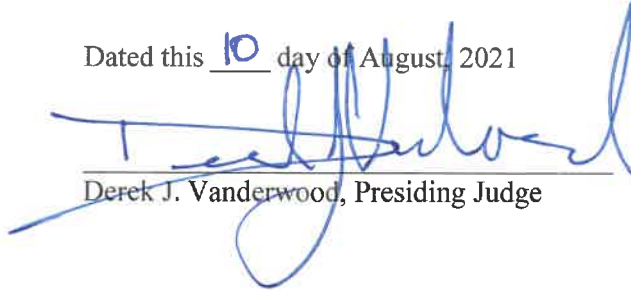 Dated this 10 day of August, 2021
Derek J. Vanderwood, Presiding Judge